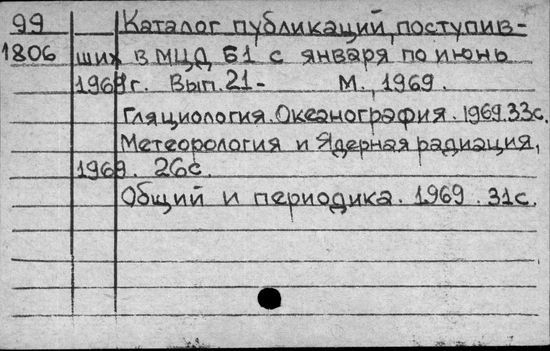 99 Каталог публикаций, поступив-
1806 ших в МЦД Б1 с января по июнь
1969г. Вып. 21- М., 1969.
Гляциология. Океанография. 1969. 33с.
Метеорология и Ядерная радиация,
1969. 26с.
Общий и периодика. 1969. 31с.